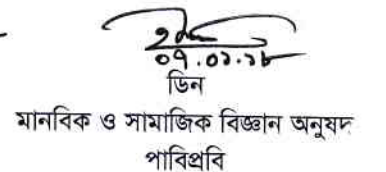 ০৭.০১.১৮
ডিন
মানবিক ও সামাজিক বিজ্ঞান অনুষদ
পাবিপ্রবি